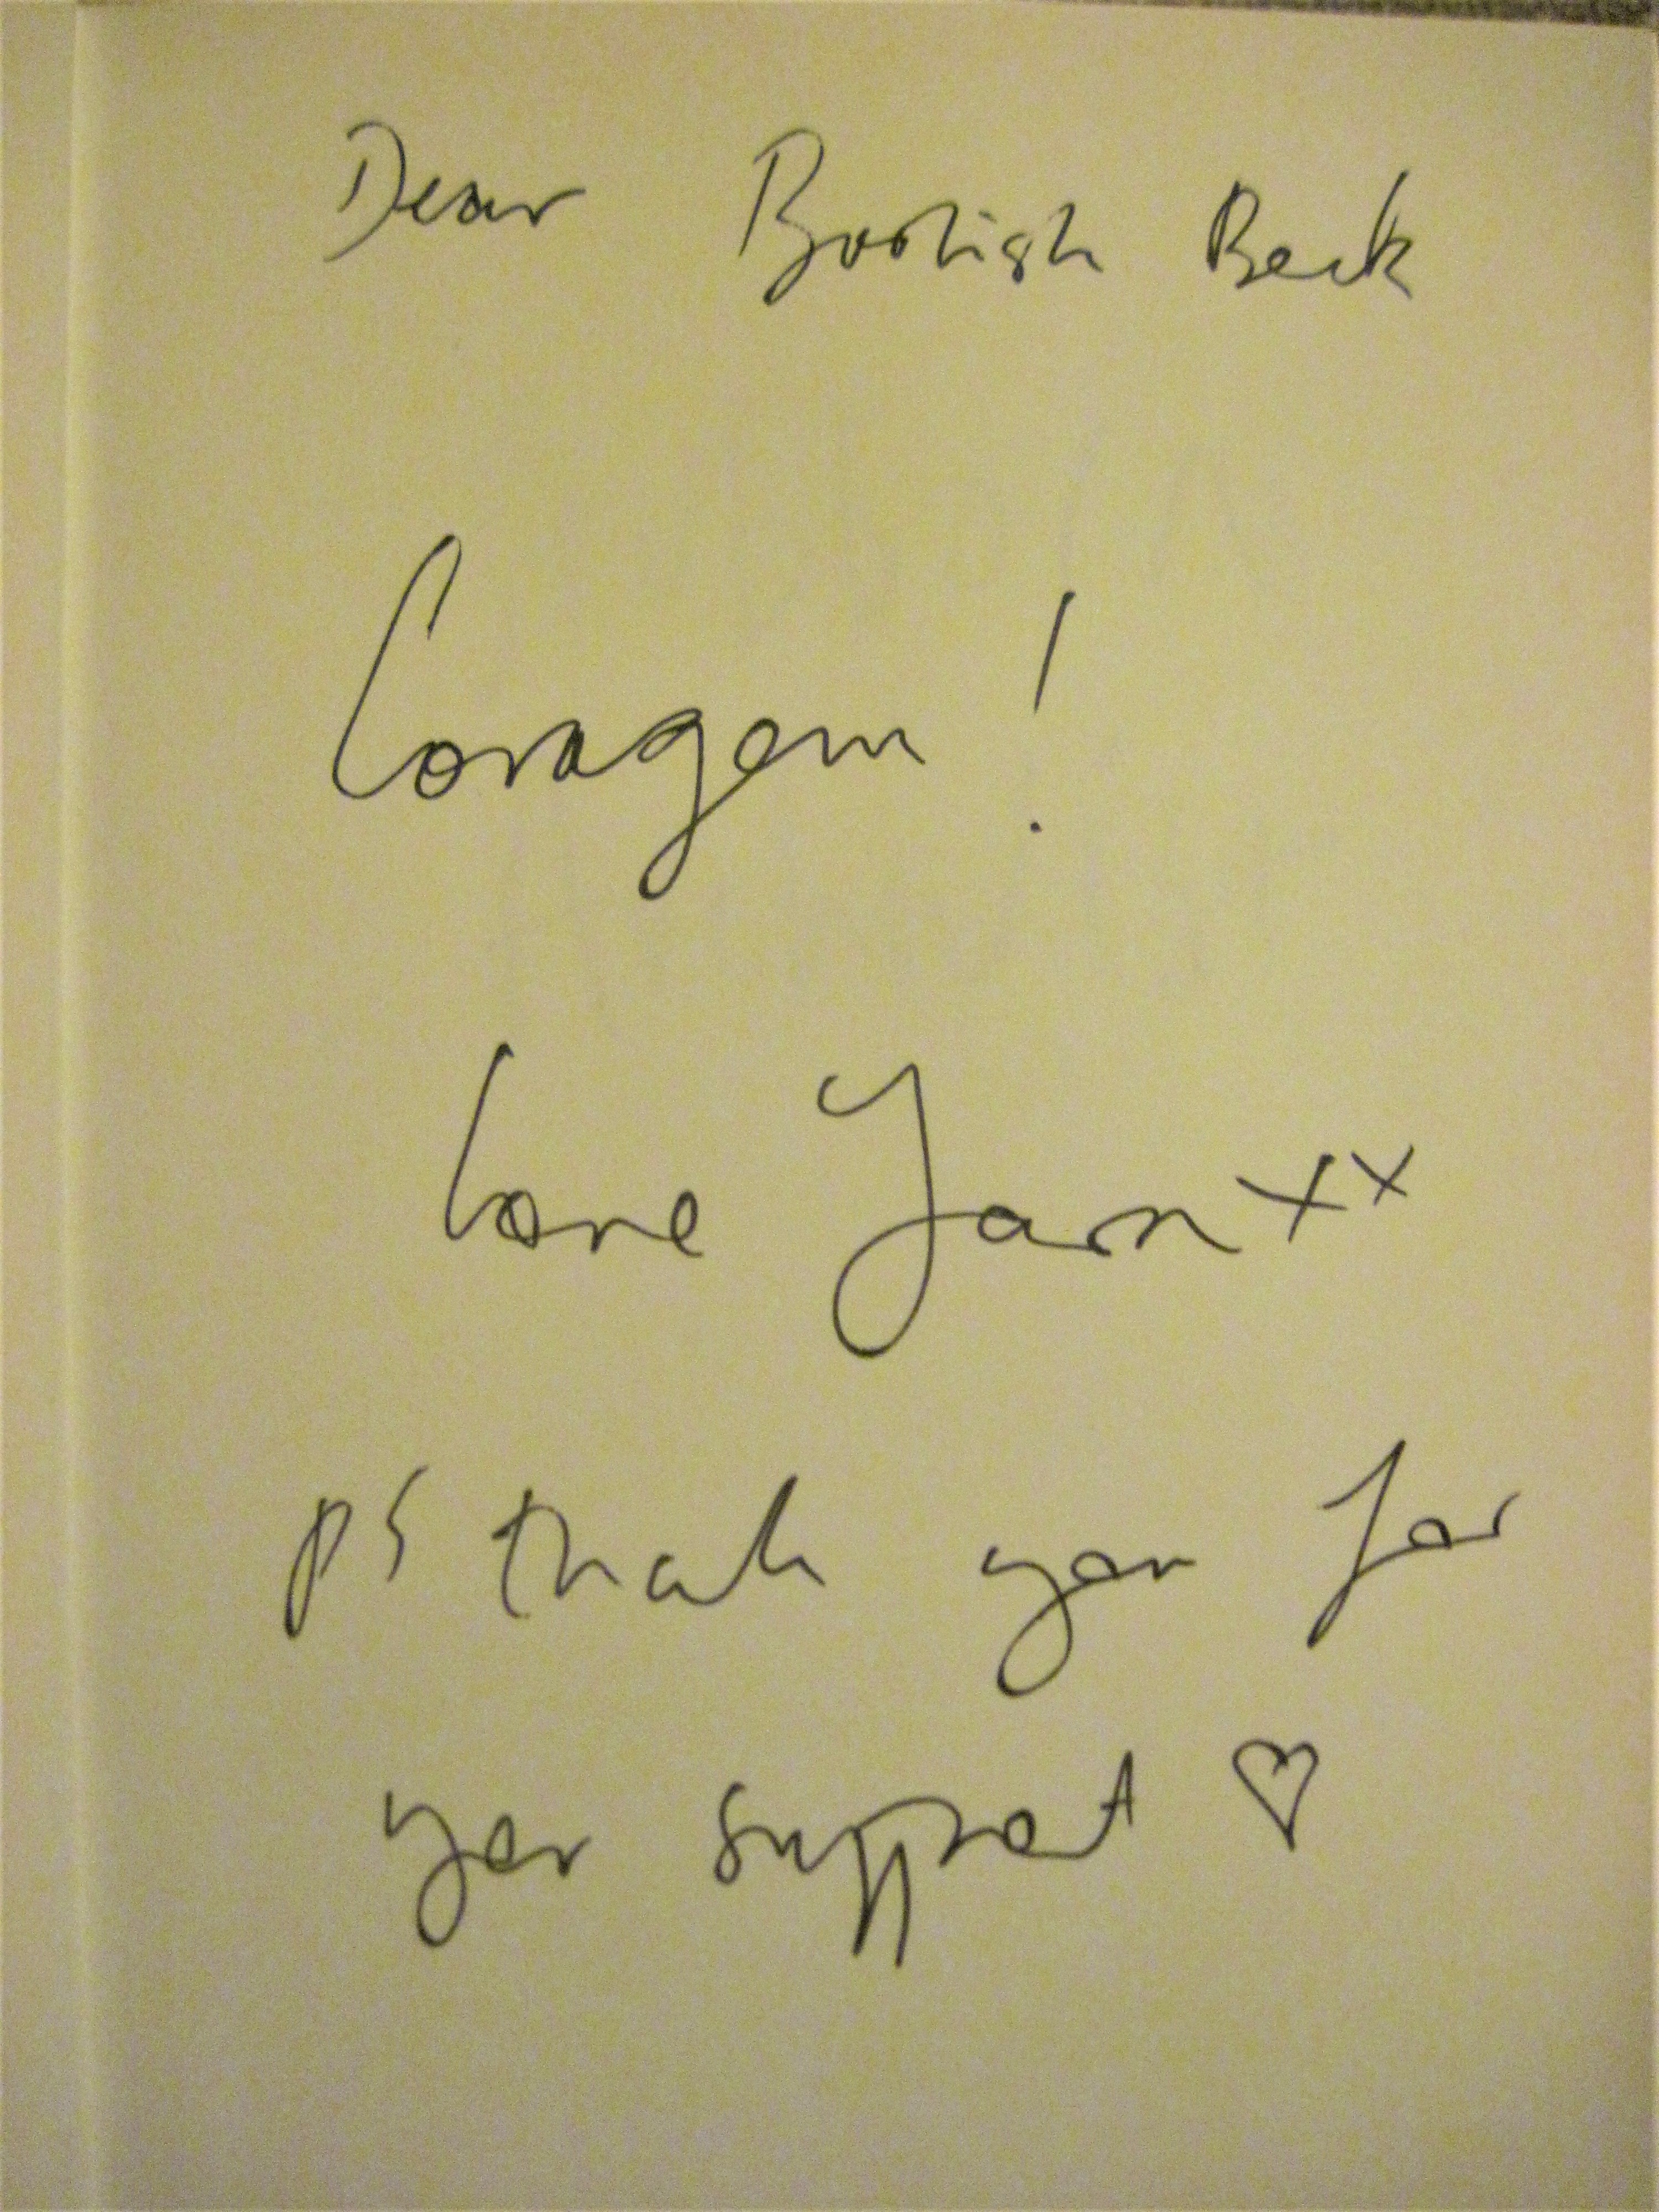 Dear Bookish Beck
Coragem!
Love Yann xx
PS thank you for
your support ♡